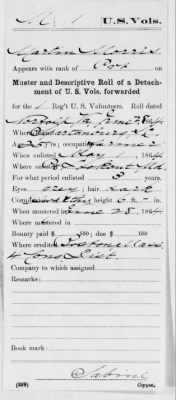 M | 1 | U.S. Vols.
Marion Morris
Appears with rank of Cor on
Muster and Descriptive Roll of a Detach-
ment of U. S. Vols. forwarded
for the 1 Reg't U. S. Volunteers. Roll dated
Norfolk Va June 1864
Where
occupation Farmer
When enlisted May 1864
Where enlisted Pt Lookout Md
For what period enlisted 3 years.
Eyes grey; hair dark
height 6 ft. in.
When mustered June 28, 1864
Where mustered
Bounty paid $ 100; due $ 100
Where credited
4 Cong Dist
Company to which assigned
Remarks:
Book mark:
Sabine
(339) Copyist.